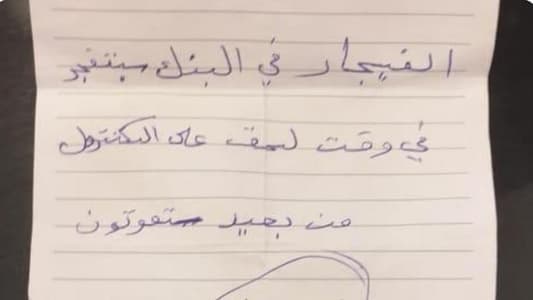 الفيجار في البنك ستنفجر
في وقت لحق على الكنترول
من بعيد ستموتون